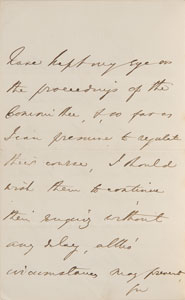 have kept my eye on
the proceedings of the
Committee, & so far as
I can presume to regulate
their course, I should
wish them to continue
their enquiry without
any delay, altho'
circumstances may prevent